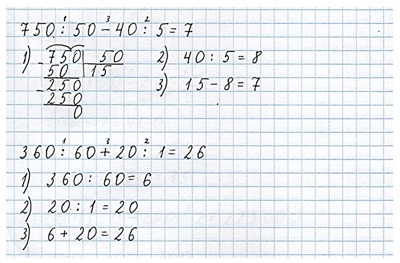 750 : 50 - 40 : 5 = 7
1) 750 | 50
- 50 | 15
- 250
250
0
2) 40 : 5 = 8
3) 15 - 8 = 7
360 : 60 + 20 : 1 = 26
1) 360 : 60 = 6
2) 20 : 1 = 20
3) 6 + 20 = 26